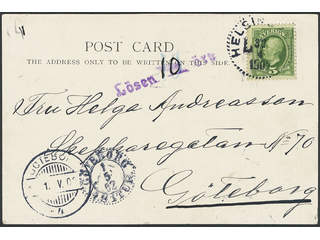 POST CARD
THE ADDRESS ONLY TO BE WRITTEN ON THIS SIDE
Lösen 10
HELSIN
SVERIGE
5
Fru Helga Andreasson
Skepparegatan No 70
Göteborg
GÖTEBORG
1. V.